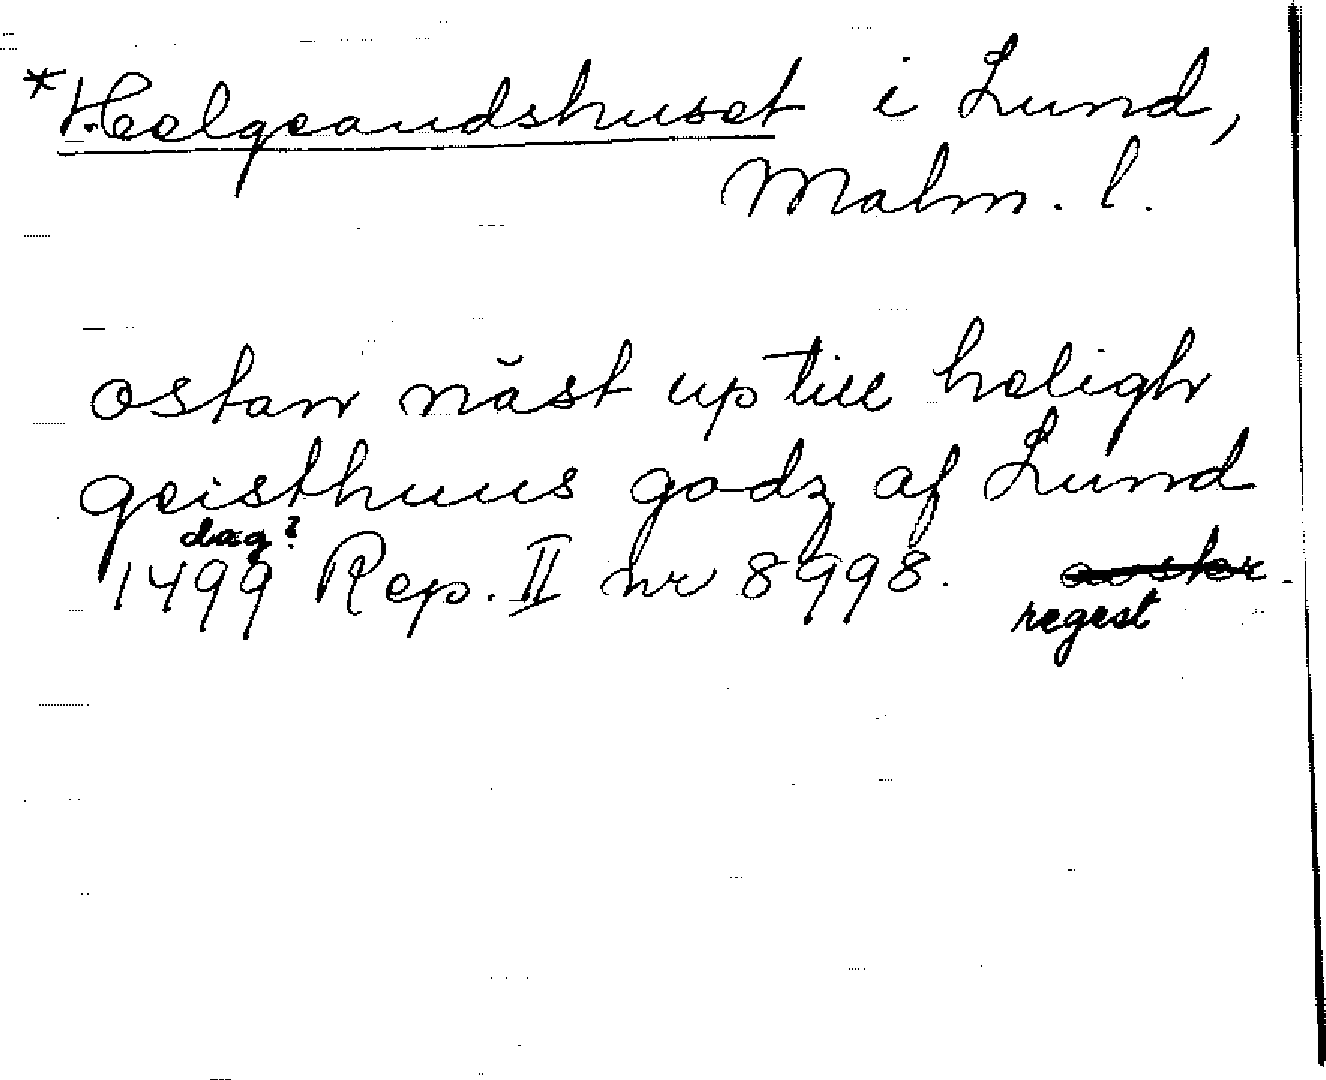 *Helgeandshuset i Lund,
Malm. l.
ostan näst up till heligh
geisthuus godz af Lund
dag?
1499 Rep. II nr 8998.
regest